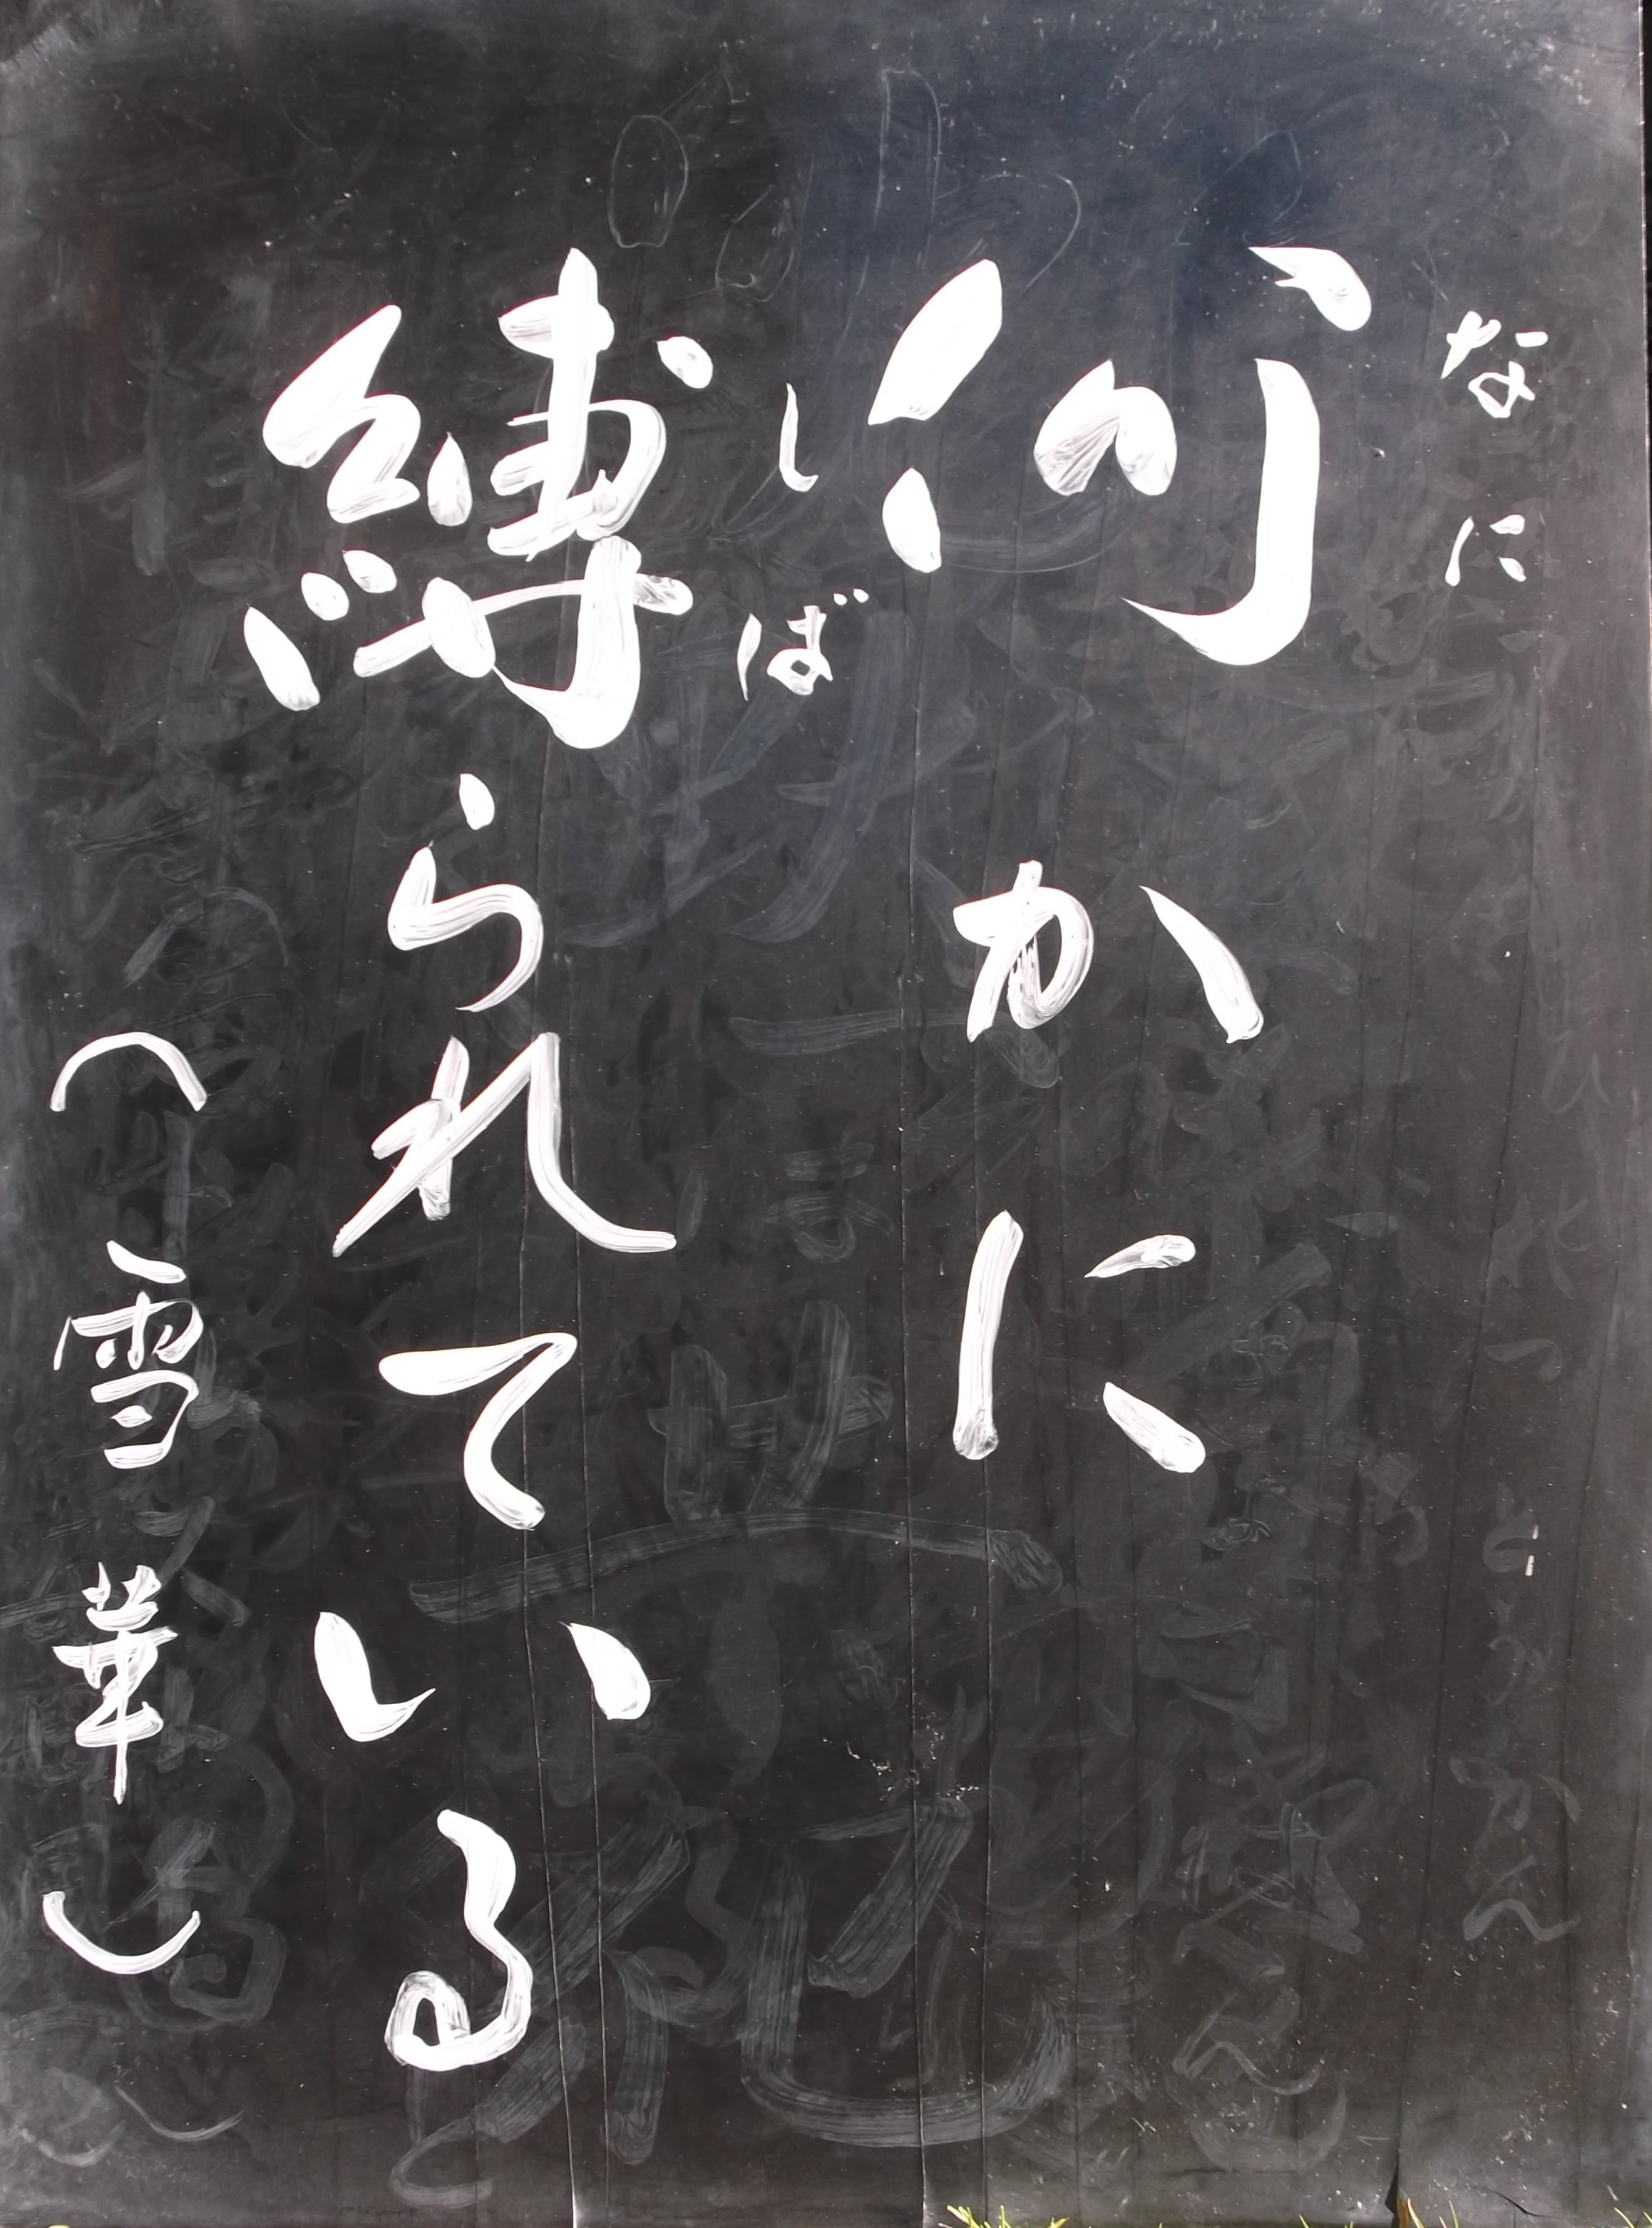 なに
何かに
しば
縛られている
(雪華)